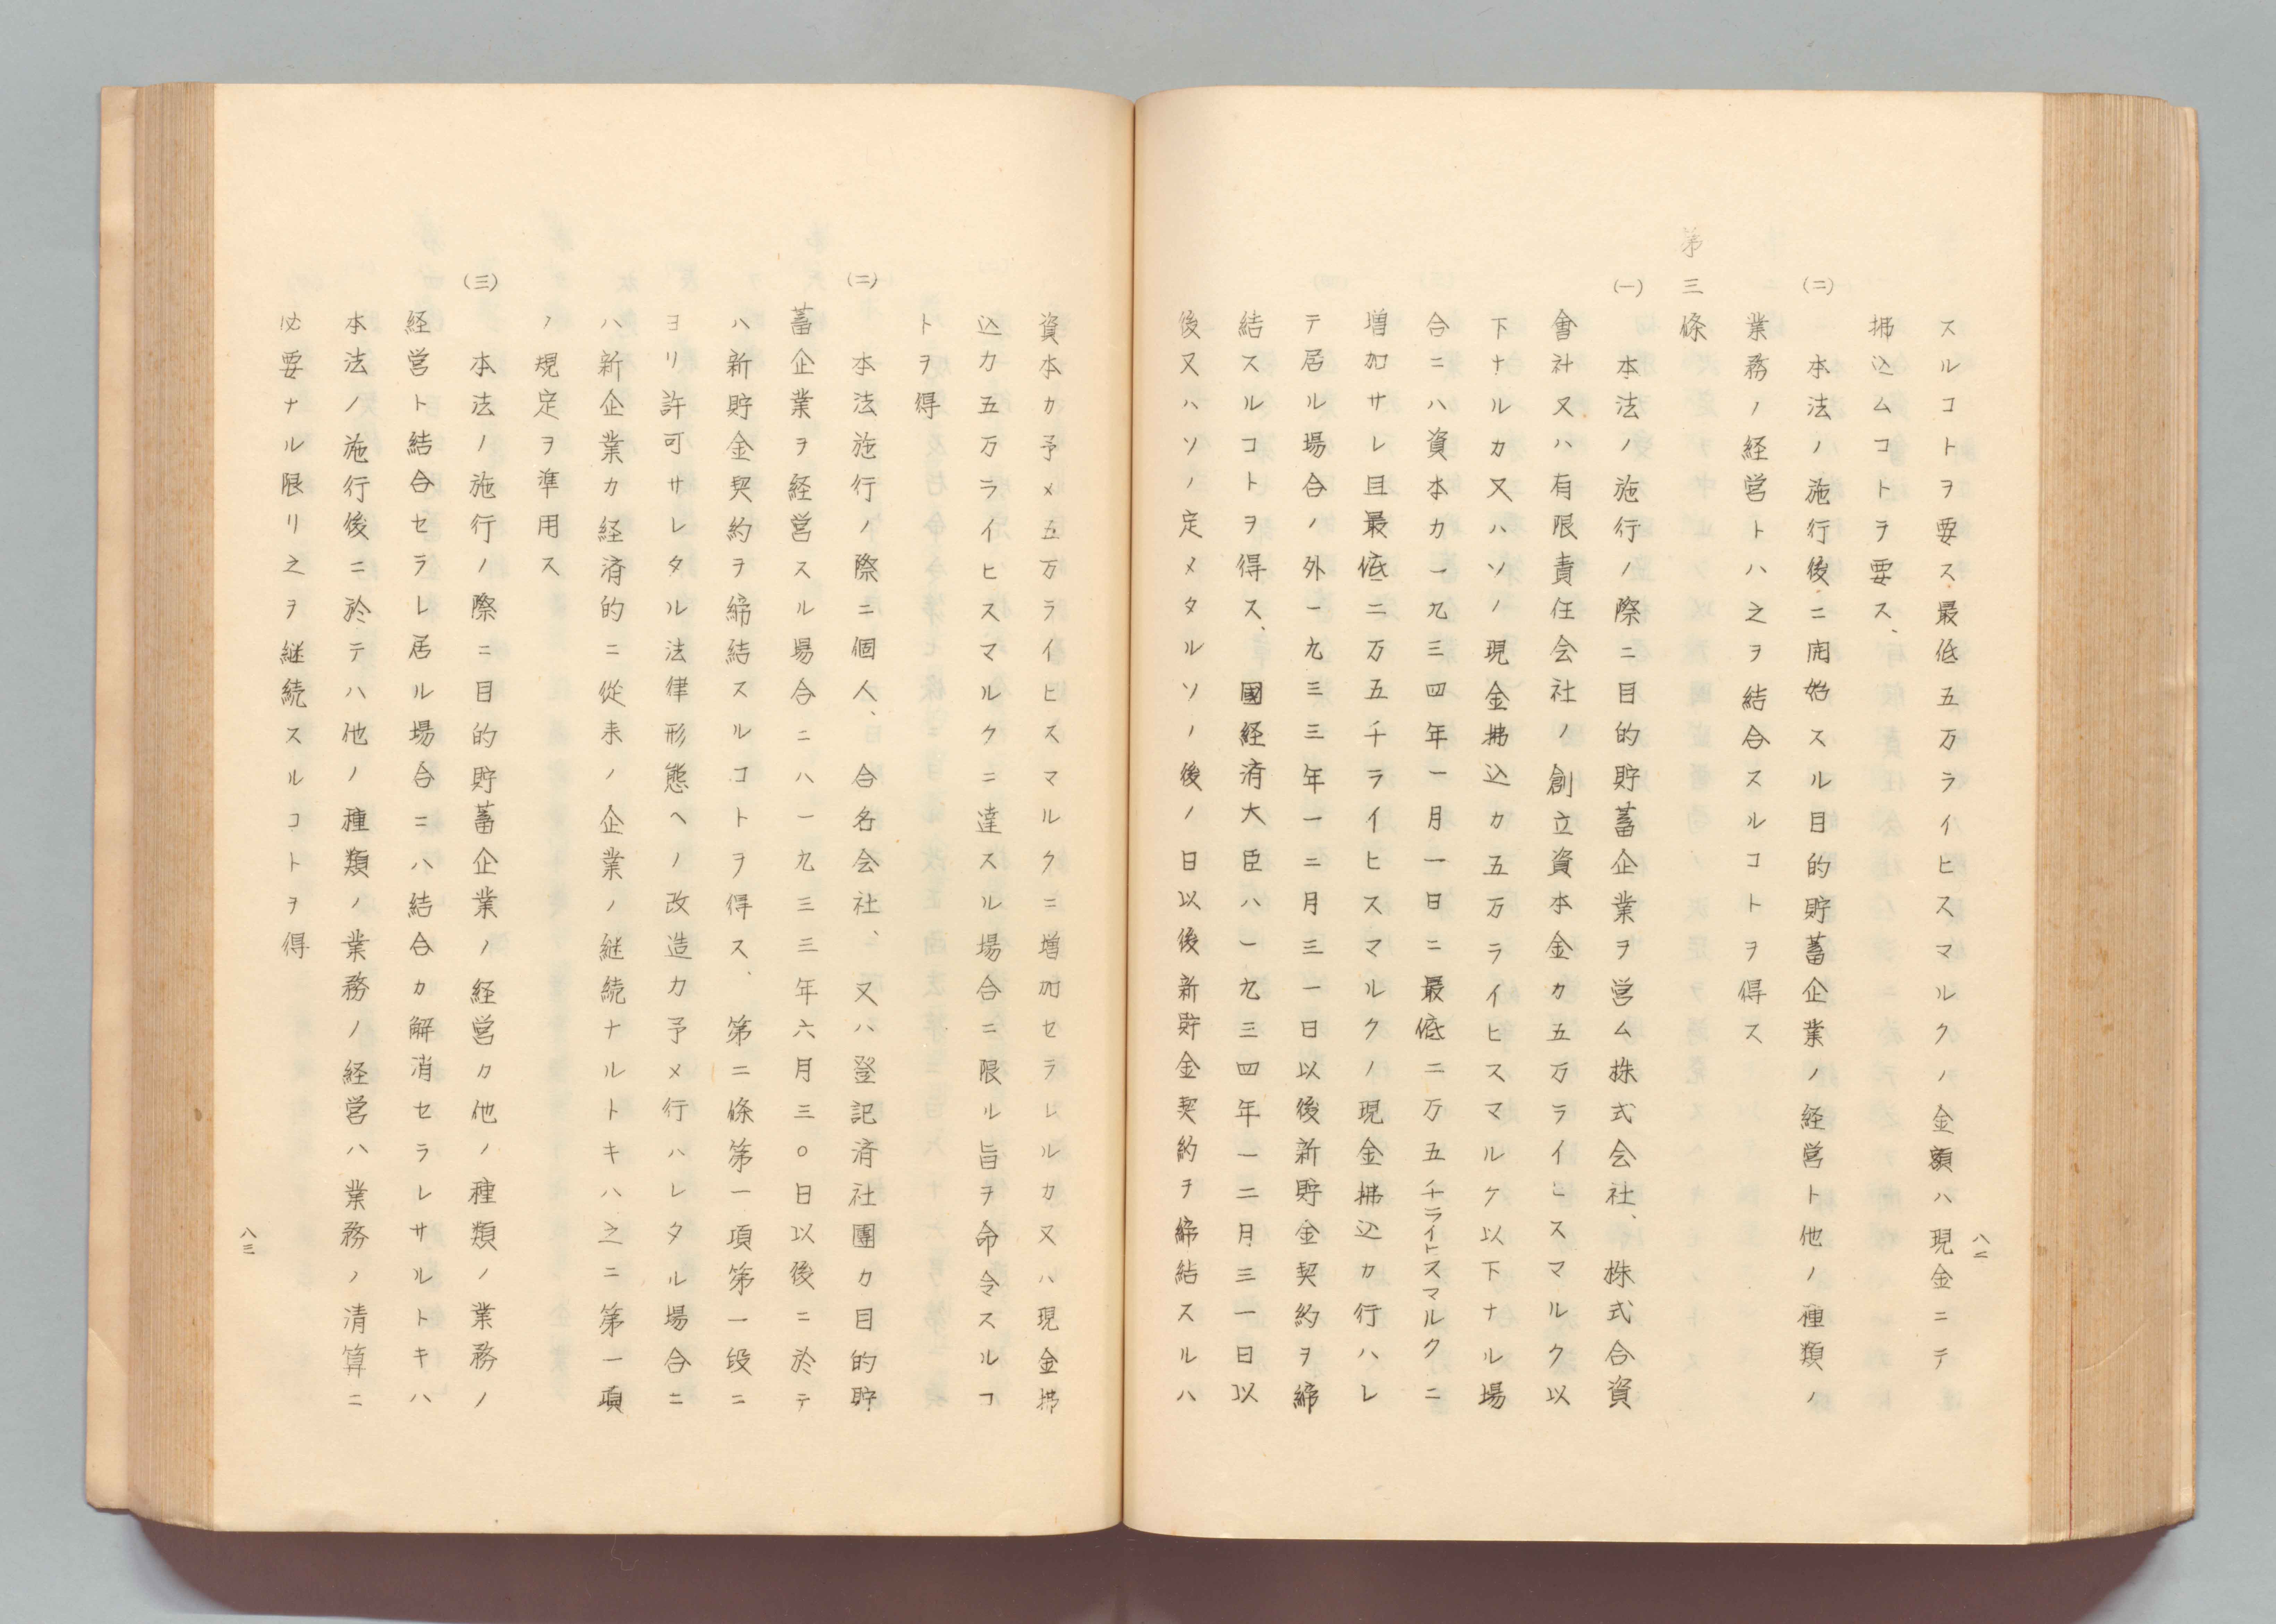 スルコトヲ要ス最低五万ライヒスマルクノ金額ハ現金ニテ
拂込ムコトヲ要ス、
(二) 本法ノ施行後ニ開始スル目的貯蓄企業ノ経営ト他ノ種類ノ
業務ノ経営トハ之ヲ結合スルコトヲ得ス
第三條
(一) 本法ノ施行ノ際ニ目的貯蓄企業ヲ営ム株式会社、株式合資
會社又ハ有限責任会社ノ創立資本金カ五万ライヒスマルク以
下ナルカ又ハソノ現金拂込カ五万ライヒスマルク以下ナル場
合ニハ資本カ一九三四年一月一日ニ最低二万五千ライヒスマルクニ
増加サレ且最低二万五千ライヒスマルクノ現金拂込カ行ハレ
テ居ル場合ノ外一九三三年一二月三一日以後新貯金契約ヲ締
結スルコトヲ得ス、國経済大臣ハ一九三四年一二月三一日以
後又ハソノ定メタルソノ後ノ日以後新貯金契約ヲ締結スルハ
八二
資本カ予メ五万ライヒスマルクニ増加セラレルカ又ハ現金拂
込カ五万ライヒスマルクニ達スル場合ニ限ル旨ヲ命令スルコ
トヲ得
(二) 本法施行ノ際ニ個人、合名会社、又ハ登記済社團カ目的貯
蓄企業ヲ経営スル場合ニハ一九三三年六月三〇日以後ニ於テ
ハ新貯金契約ヲ締結スルコトヲ得ス、第二條第一項第一段ニ
ヨリ許可サレタル法律形態ヘノ改造カ予メ行ハレタル場合ニ
ハ新企業カ経済的ニ從来ノ企業ノ継続ナルトキハ之ニ第一項
ノ規定ヲ準用ス
(三) 本法ノ施行ノ際ニ目的貯蓄企業ノ経営カ他ノ種類ノ業務ノ
経営ト結合セラレ居ル場合ニハ結合カ解消セラレサルトキハ
本法ノ施行後ニ於テハ他ノ種類ノ業務ノ経営ハ業務ノ清算ニ
必要ナル限リ之ヲ継続スルコトヲ得
八三